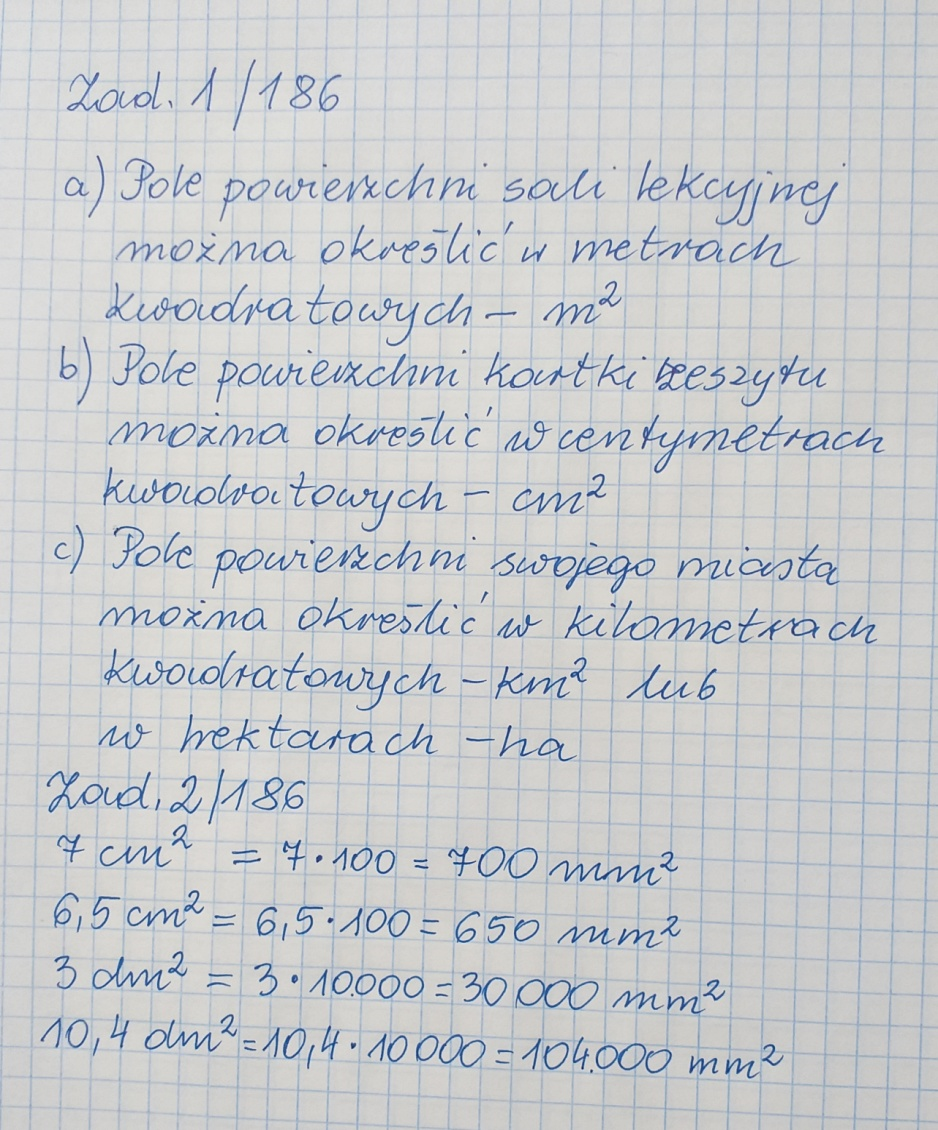 Zad. 1/186
a) Pole powierzchni sali lekcyjnej
można określić w metrach
kwadratowych – m²
b) Pole powierzchni kartki zeszytu
można określić w centymetrach
kwadratowych – cm²
c) Pole powierzchni swojego miasta
można określić w kilometrach
kwadratowych – km² lub
w hektarach – ha
Zad. 2/186
7 cm² = 7·100 = 700 mm²
6,5 cm² = 6,5·100 = 650 mm²
3 dm² = 3·10.000 = 30 000 mm²
10,4 dm² = 10,4·10 000 = 104.000 mm²